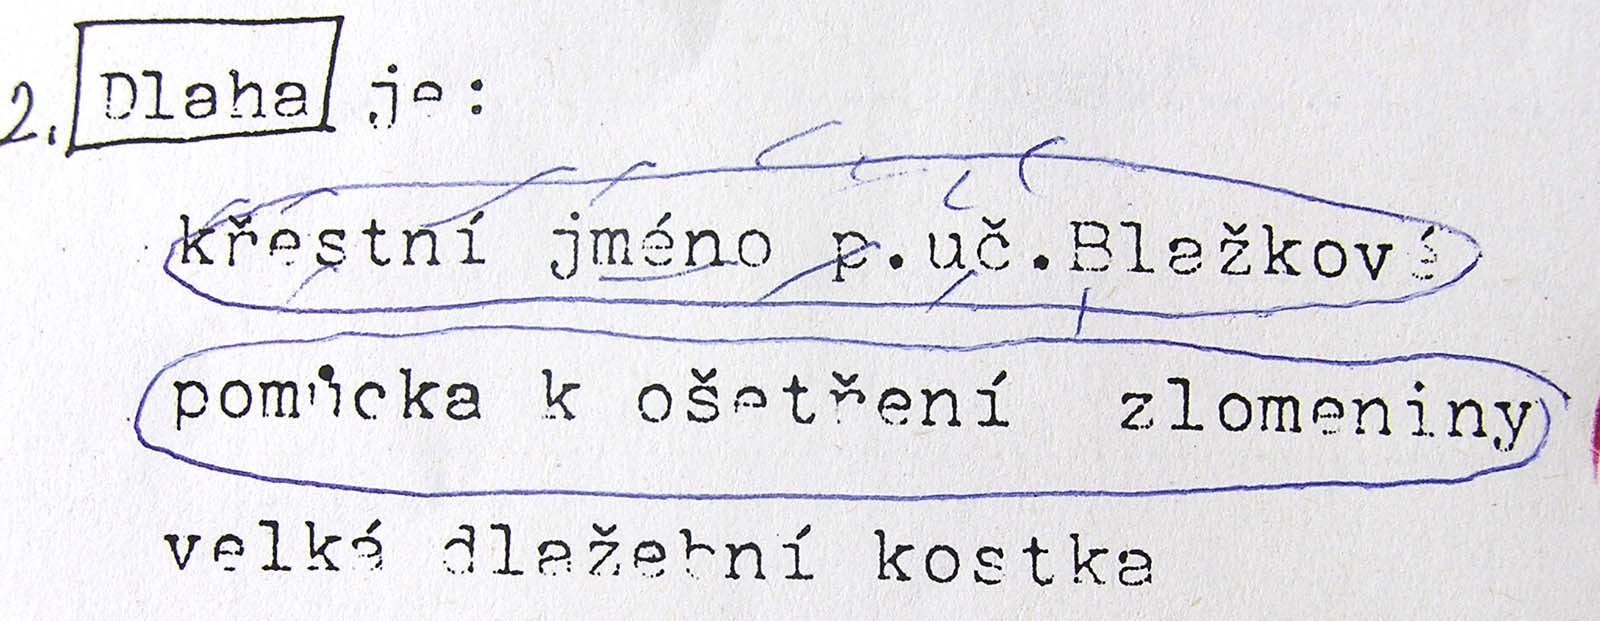 2. Dlaha je:
křestní jméno p.uč.Blažkové
pomůcka k ošetření zlomeniny
velká dlažební kostka